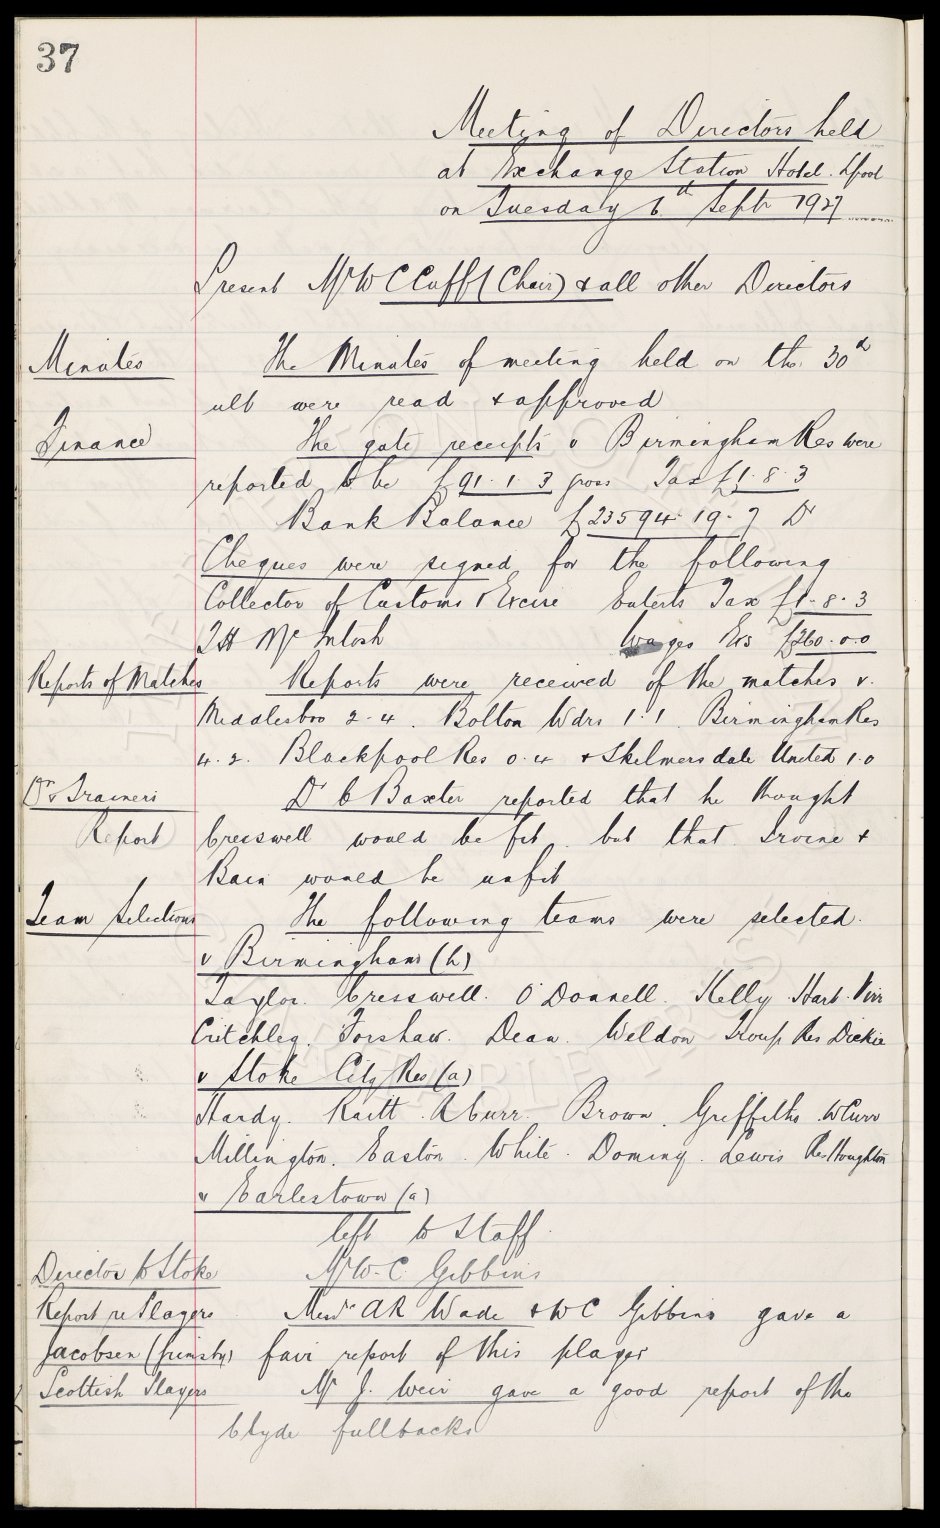 37
Meeting of Directors held
at Exchange Station Hotel. Lpool
on Tuesday 6th Septr 1927
Present Mr W C Cuff (Chair) & all other Directors
Minutes The Minutes of meeting held on the 30th
ult were read & approved
Finance The gate receipts v Birmingham Res were
reported to be £91.1.3 gross Tax £1.8.3
Bank Balance £23594.19.7 Dr
Cheques were signed for the following
Collector of Customs & Excise Enterts Tax £1.8.3
T H McIntosh Wages Exs £260.0.0
Reports of Matches Reports were received of the matches v.
Middlesboro 2-4. Bolton Wdrs 1.1. Birmingham Res
4.2. Blackpool Res 0.4 & Skelmersdale United 1.0
Dr & Trainers Dr C Baxter reported that he thought
Report Cresswell would be fit. but that Irvine &
Bain would be unfit
Team Selections The following teams were selected.
v Birmingham (h)
Taylor. Cresswell. O'Donnell. Kelly. Hart. Virr
Critchley. Forshaw. Dean. Weldon Troup Res Dickie
v Stoke City Res (a)
Hardy. Raitt. R Curr. Brown. Griffiths. W Curr
Millington. Easton. White. Dominy. Lewis Res Houghton
v Earlestown (a)
left to Staff.
Director to Stoke Mr W. C. Gibbins
Report re Players Messrs A R Wade & W C Gibbins gave a
Jacobsen (Grimsby) fair report of this player
Scottish Players Mr J. Weir gave a good report of the
Clyde fullbacks